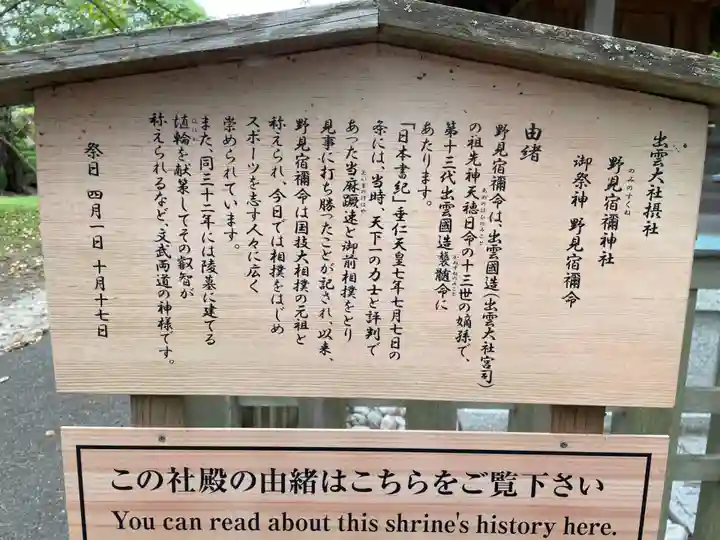 出雲大社摂社
野見宿禰神社
のみのすくね
御祭神 野見宿禰命
由緒
野見宿禰命は、出雲國造(出雲大社宮司)
の祖先神天穂日命の十三世の嫡孫で、
あめのほひのみこと
第十三代出雲國造襲髄命に
かねすねのみこと
あたります。
「日本書紀」垂仁天皇七年七月七日の
条には、当時、天下一の力士と評判で
あった当麻蹶速と御前相撲をとり
たいまのけはや
見事に打ち勝ったことが記され、以来、
野見宿禰命は国技大相撲の元祖と
称えられ、今日では相撲をはじめ
スポーツを志す人々に広く
崇められています。
また、同三十二年には陵墓に建てる
埴輪を献策してその叡智が
はにわ
称えられるなど、文武両道の神様です。
祭日 四月一日 十月十七日
この社殿の由緒はこちらをご覧下さい
You can read about this shrine's history here.